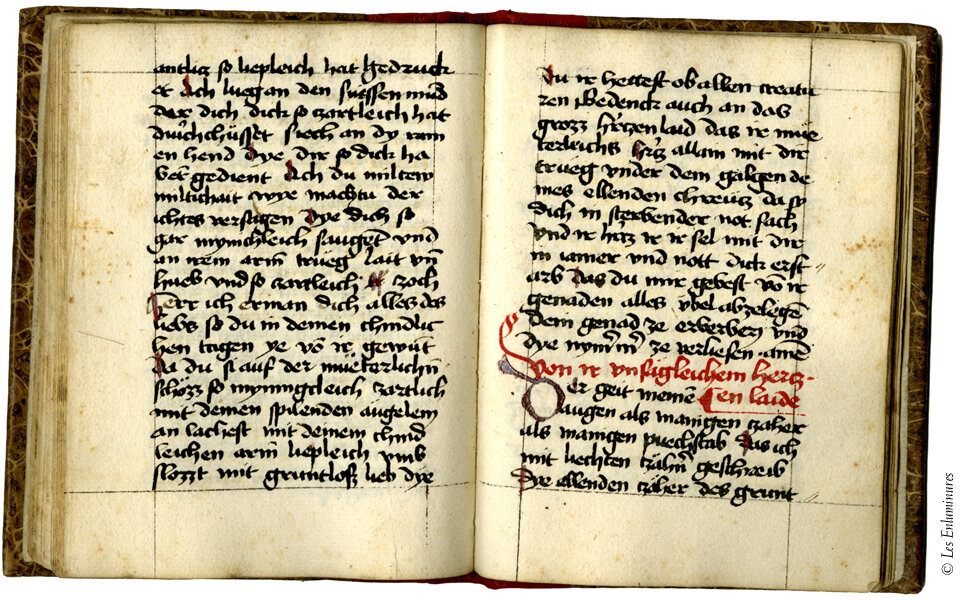 antlitz so liepleich hat gedruck
et Ach lueg an den suessen mund
der dich dick so zartleich hat
durchchüsset siech an dy rain
en hend Dye dir so dick ha
ben gedient Ach du miltew
miltichait wye machtu der
ichtes versagen Dye dich so
gar mynichleich sauget vnd
an irem arm trueg lait vnd
hueb vnd so zartleich zoch
Herr ich erman dich alles des
liebs so du in deinen chindlic
hen tagen ye von ir gewüt
Da du si auf der müeterlichen
schözz so mynnigcleich zartlich
mit deinen spilenden augelein
an lachest mit deinem chind
leichen arm lieplich vmb
slozzt mit gruntlosz lieb dye
Du ir hettest ob allen creatu
ren Bedenck auch an das
grozz hertzenlaid das ir müe
terleichs hertz allain mit dir
trueg vnder dem galgen de
ines ellenden chreutz da sy
dich in sterbender not sach
vnd ir hertz ir ir sel mit dir
in iamer und nott dick erst
arb Das du mir gebest von ir
genaden alles vbel abzelegen
dein genad ze erberben vnd
dye nymer mer ze verliesen amen
Von ir vnsägleichem hertz-
en laide
er geit meinen
augen als manigen zaher
als manigen puechstab Das ich
mit liechten zähern geschreib
Dye ellenden zäher des grunt
© Les Enluminures